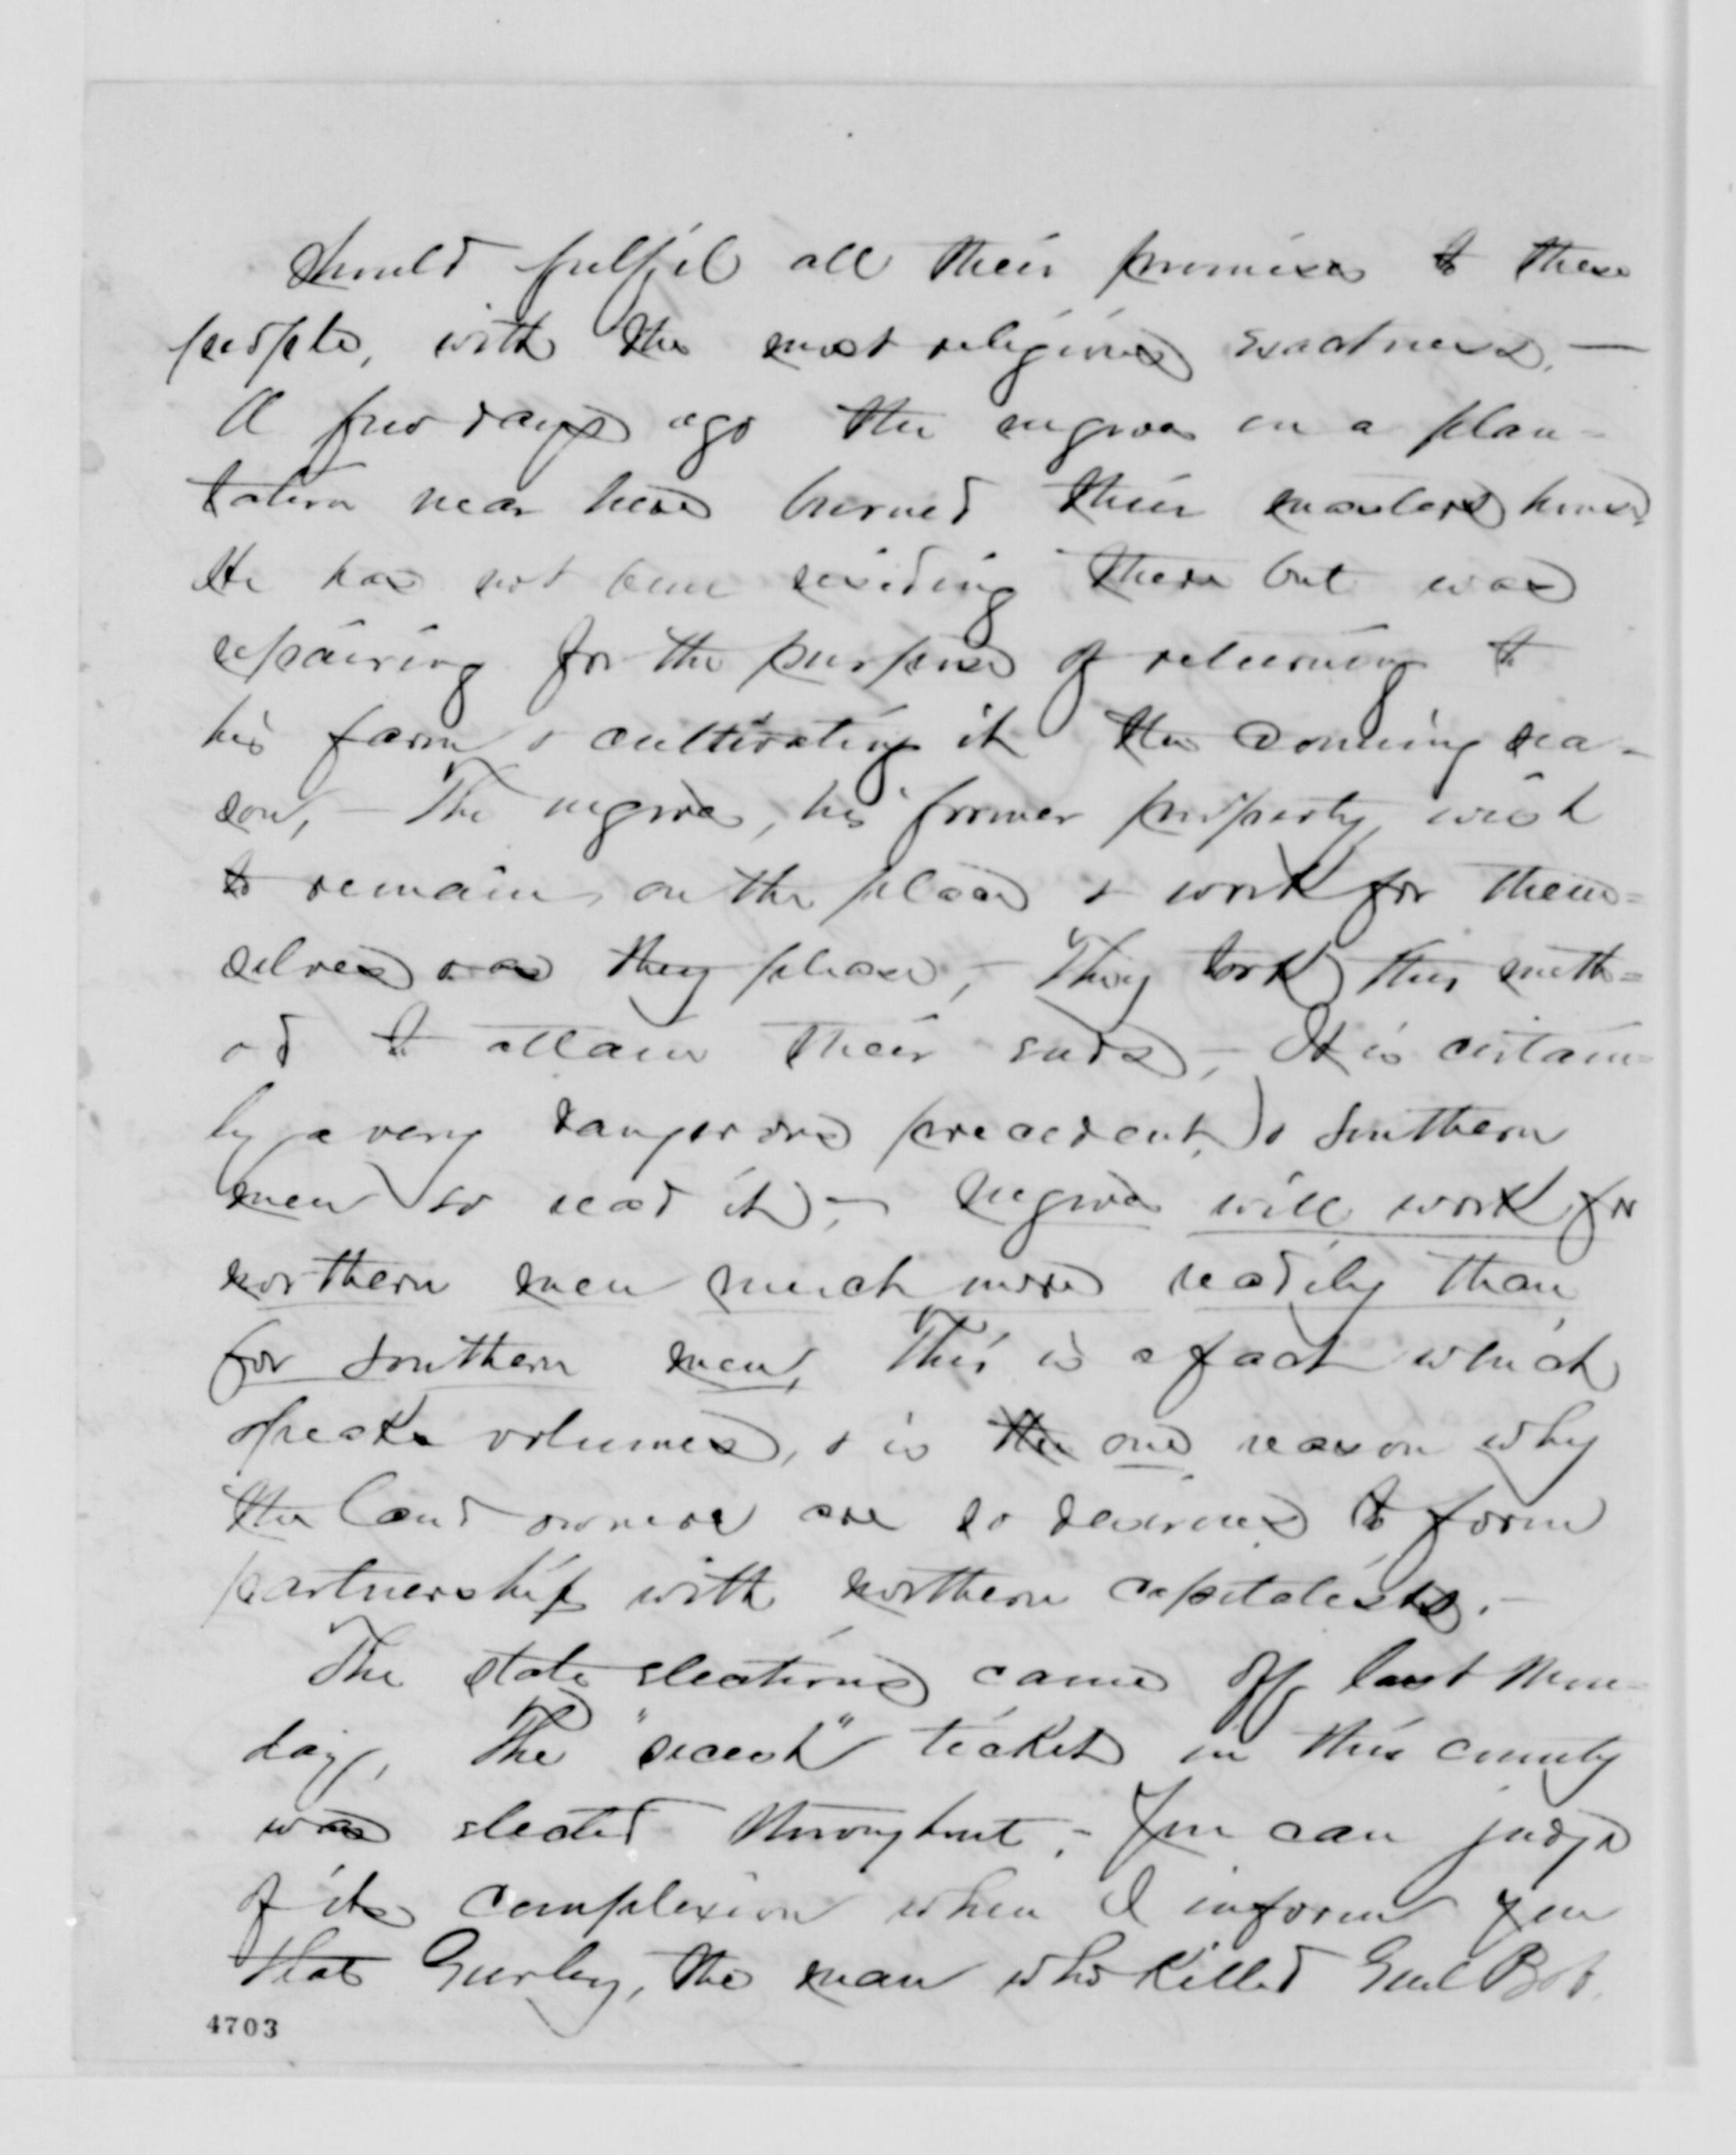 should fulfil all their promises to these
people, with the most religious exactness. —
A few days ago the negroes on a plan=
tation near here burned their masters house,
He has not been residing there but was
repairing for the purpose of returning to
his farm & cultivating it the comming sea-
son, - The negroes, his former property, wish
to remain on the place & work for them=
selves & as they please, - They took this meth=
od to attain their ends, - It is certain=
ly a very dangerous precedent, & southern
men so read it, - Negroes will work for
northern men much more readily than
for southern men, This is a fact which
speaks volumes, & is the one reason why
the land owners are so desirous to form
partnership with northern capitalists. -
The state elections came off last Mon-
day, The "secesh" ticket in this county
was elected throughout, - You can judge
of its complexion when I inform you
that Gurley, the man who killed Genl Bob.
4703